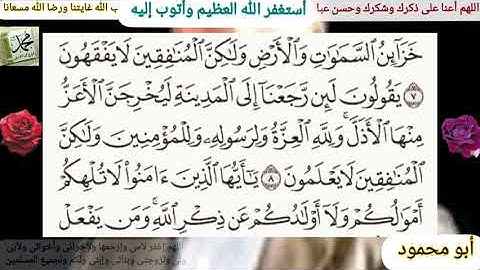 اللهم أعنا على ذكرك وشكرك وحسن عبا
أستغفر الله العظيم وأتوب إليه
ب الله غايتنا ورضا الله مسعانا
محمد
خَزَآئِنُ ٱلسَّمَٰوَٰتِ وَٱلْأَرْضِ وَلَٰكِنَّ ٱلْمُنَٰفِقِينَ لَا يَفْقَهُونَ
٧ يَقُولُونَ لَئِن رَّجَعْنَآ إِلَى ٱلْمَدِينَةِ لَيُخْرِجَنَّ ٱلْأَعَزُّ
مِنْهَا ٱلْأَذَلَّ ۚ وَلِلَّهِ ٱلْعِزَّةُ وَلِرَسُولِهِۦ وَلِلْمُؤْمِنِينَ وَلَٰكِنَّ
ٱلْمُنَٰفِقِينَ لَا يَعْلَمُونَ ٨ يَٰٓأَيُّهَا ٱلَّذِينَ ءَامَنُوا۟ لَا تُلْهِكُمْ
أَمْوَٰلُكُمْ وَلَآ أَوْلَٰدُكُمْ عَن ذِكْرِ ٱللَّهِ ۚ وَمَن يَفْعَلْ
أبو محمود